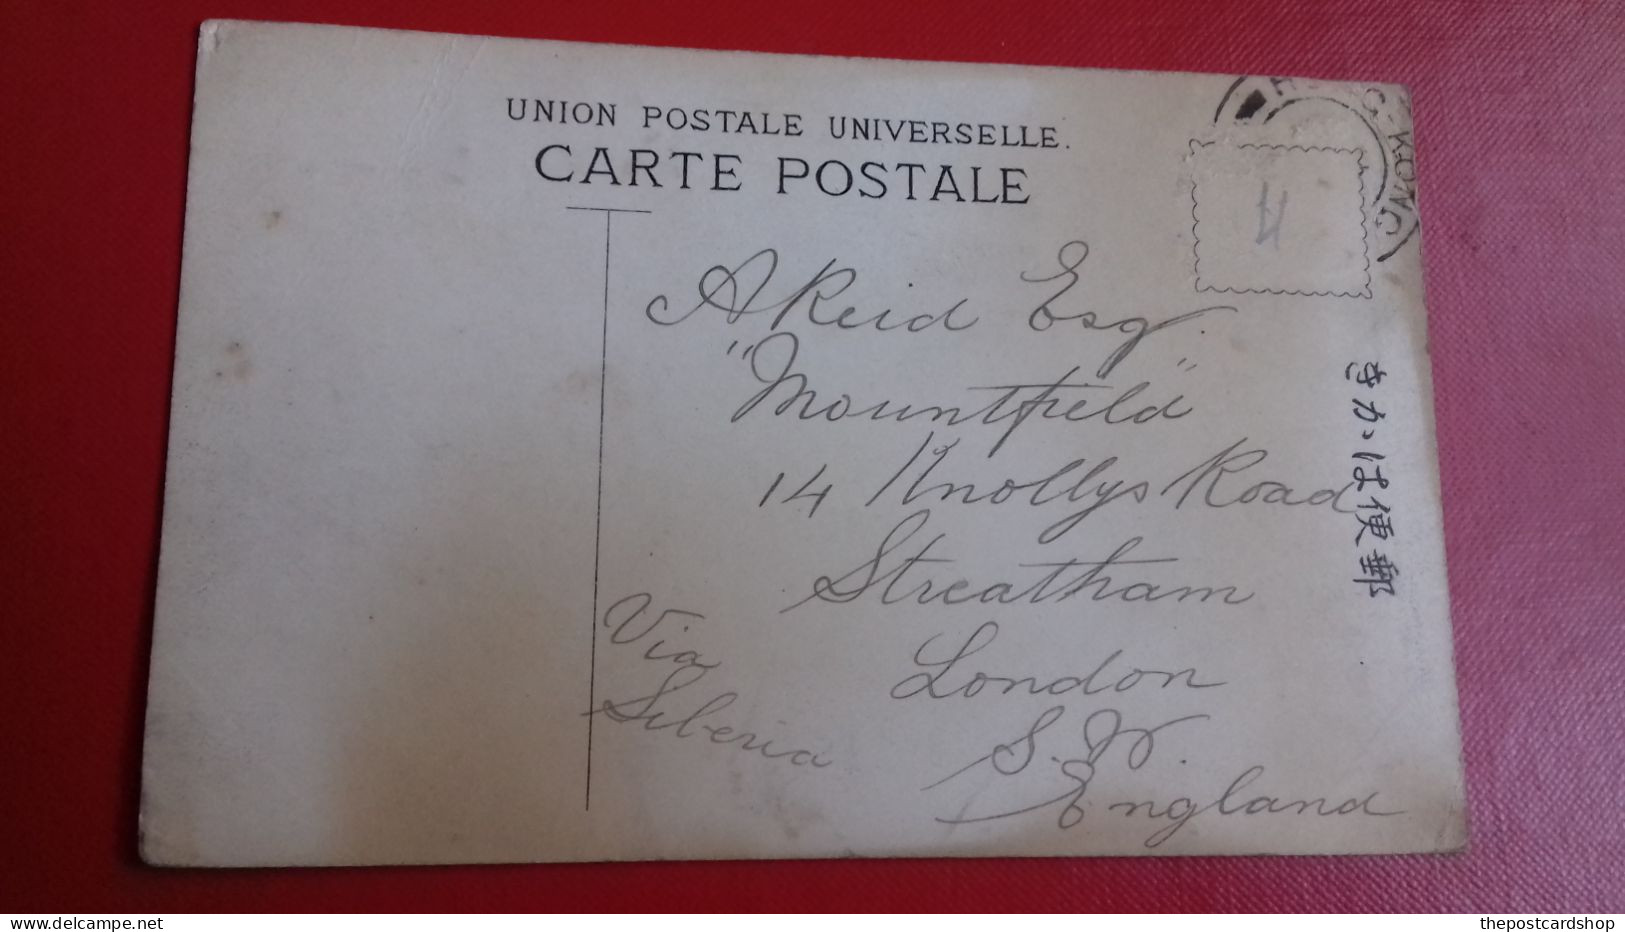 UNION POSTALE UNIVERSELLE.
CARTE POSTALE
HONG-KONG
4
A Reid Esq.
"Mountfield"
14 Knollys Road
Streatham
London
S. W.
England
Via
Siberia
きかは便郵
thepostcardshop